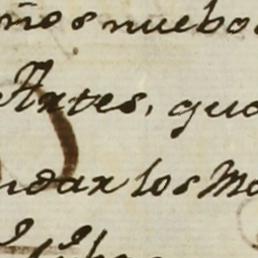 ños nuebo
Artes, qua
ndar los Ma